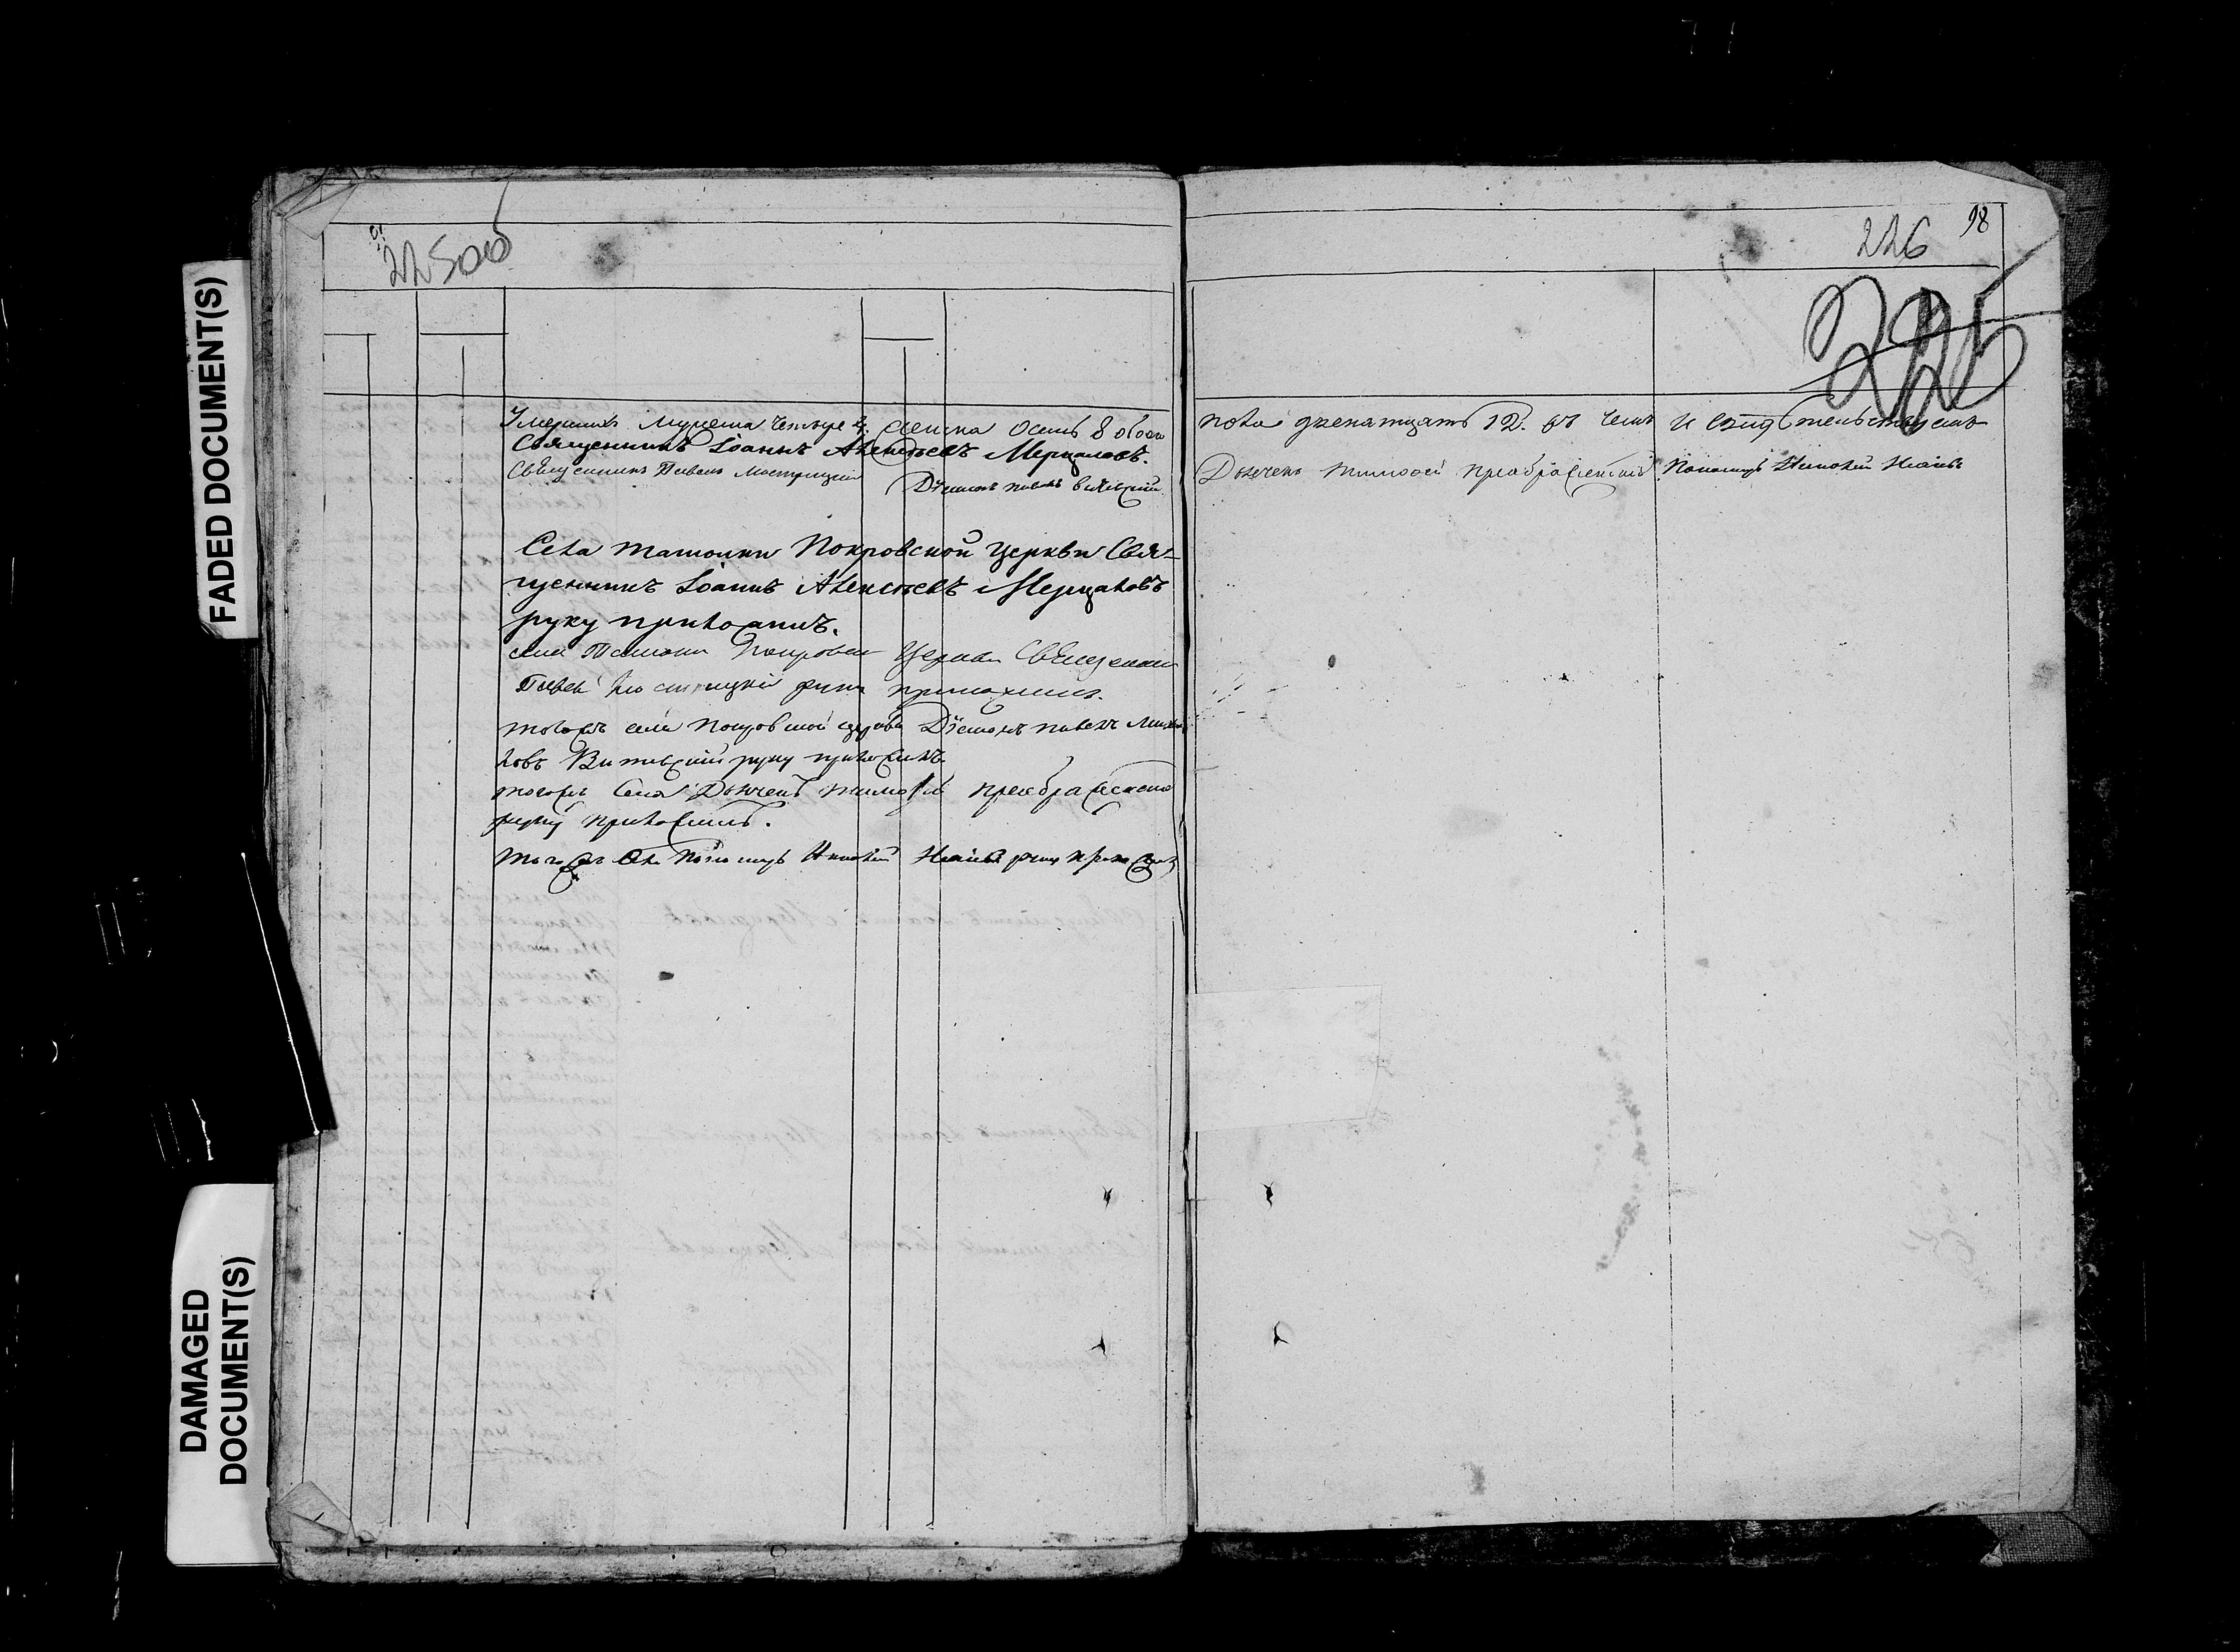 FADED DOCUMENT(S)
DAMAGED DOCUMENT(S)
225 об
226 98
226
Умершихъ мужеска четыре 4. женска осемь 8 обоего
Священникъ Іоаннъ Алексѣевъ Мерцаловъ.
Священникъ Павелъ
Діаконъ павелъ
Села Покровской Церкви Свя-
щенникъ Іоаннъ Алексѣевъ Мерцаловъ
руку приложилъ.
села Покровской Церкви Священникъ
Павелъ руку приложилъ.
тогожъ села Покровской церкви Діаконъ павелъ
руку приложилъ.
тогожъ села Дьячекъ тимофей преображенской
руку приложилъ.
тогожъ села Пономарь руку приложилъ
пола двенатцать 12. въ чемъ и свидѣтельствуемъ
Дьячекъ тимофей преображенскій Пономарь